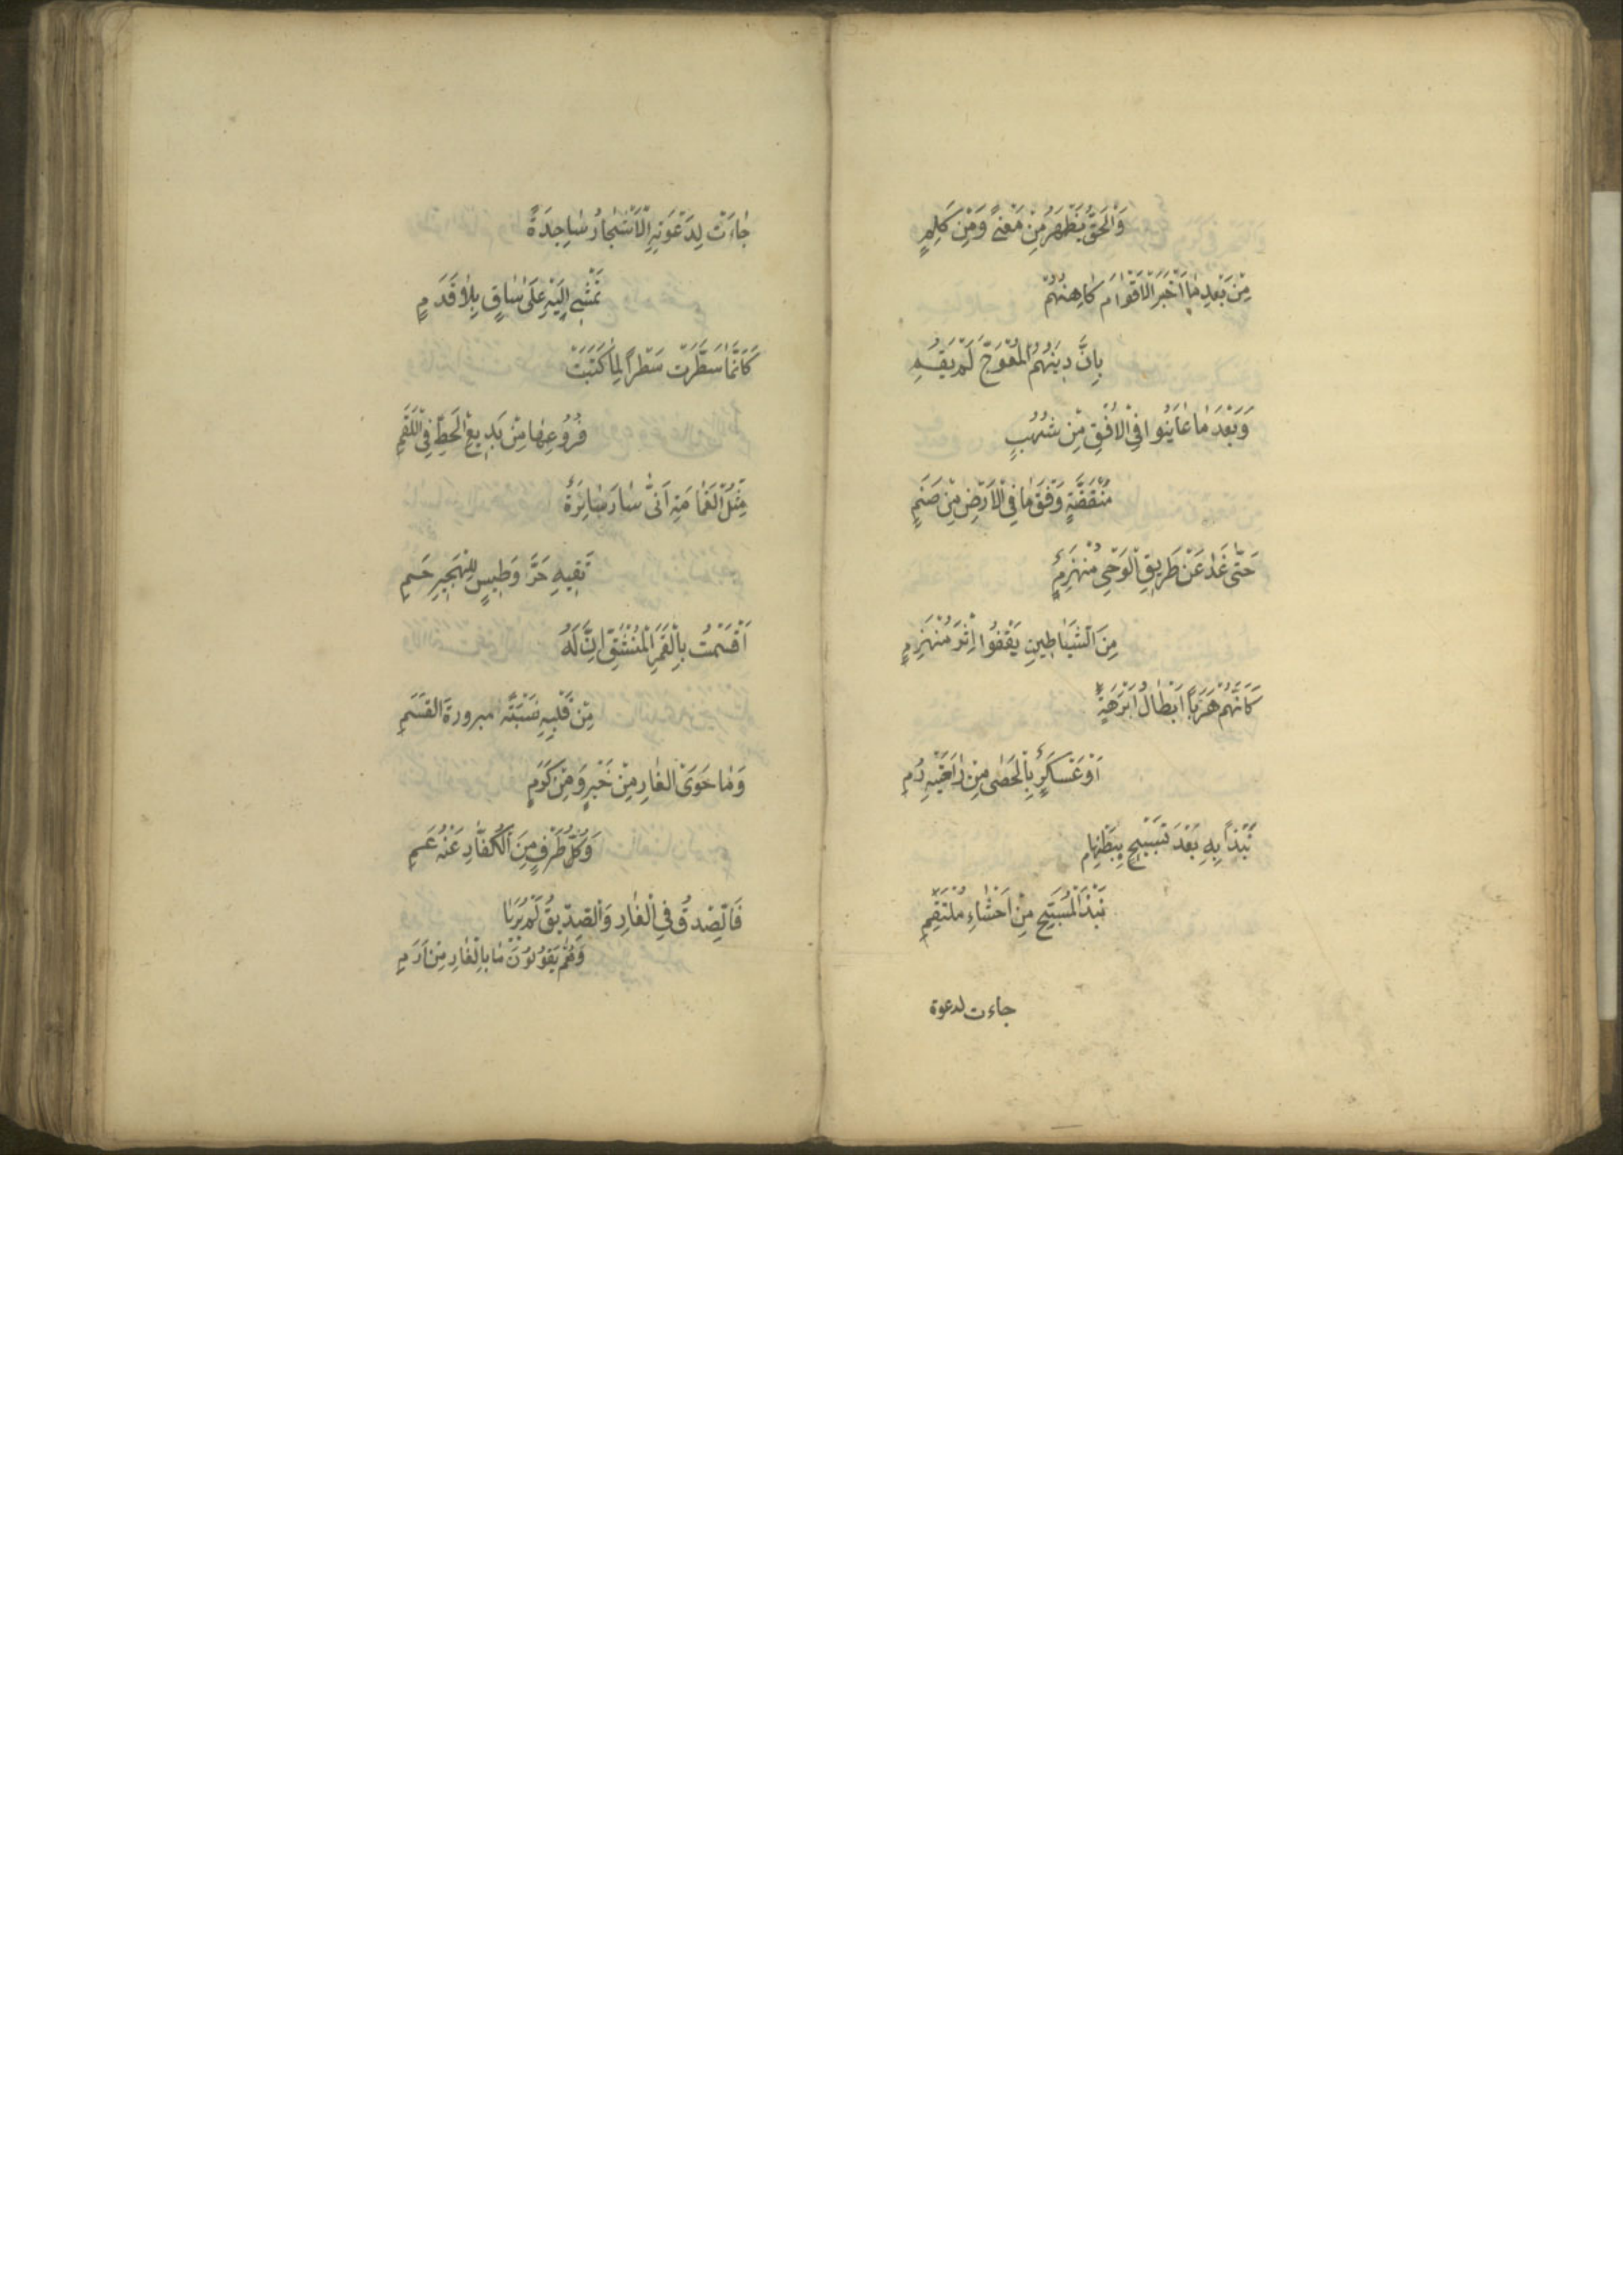 وَالْحَقُّ يَظْهَرُ مِنْ مَعْنًى وَمِنْ كَلِمٍ
مِنْ بَعْدِ مَا اَخْبَرَ الْاَقْوَامَ كَاهِنُهُمْ
بِاَنَّ دِينَهُمُ الْمُعْوَجَّ لَمْ يَقُمِ
وَبَعْدَ مَا عَايَنُوا فِي الْاُفْقِ مِنْ شُهُبٍ
مُنْقَضَّةٍ وَفْقَ مَا فِي الْاَرْضِ مِنْ صَنَمٍ
حَتَّى غَدَا عَنْ طَرِيقِ الْوَحْيِ مُنْهَزِمٌ
مِنَ الشَّيَاطِينِ يَقْفُوا اِثْرَ مُنْهَزِمٍ
كَاَنَّهُمْ هَرَبًا اَبْطَالُ اَبْرَهَةٍ
اَوْ عَسْكَرٌ بِالْحَصَى مِنْ رَاحَتَيْهِ رُمِ
نَبْذًا بِهِ بَعْدَ تَسْبِيحٍ بِبَطْنِهِمَا
نَبْذَ الْمُسَبِّحِ مِنْ اَحْشَاءِ مُلْتَقِمِ
جاءت لدعوة
جَاءَتْ لِدَعْوَتِهِ الْاَشْجَارُ سَاجِدَةً
تَمْشِي اِلَيْهِ عَلَى سَاقٍ بِلَا قَدَمٍ
كَاَنَّمَا سَطَّرَتْ سَطْرًا لِمَا كَتَبَتْ
فُرُوعُهَا مِنْ بَدِيعِ الْخَطِّ فِي اللَّقَمِ
مِثْلُ الْغَمَامَةِ اَنَّى سَارَ سَائِرَةٌ
تَقِيهِ حَرَّ وَطِيسٍ لِلْهَجِيرِ حَمِ
اَقْسَمْتُ بِالْقَمَرِ الْمُنْشَقِّ اِنَّ لَهُ
مِنْ قَلْبِهِ نِسْبَةً مبرورة القَسَمِ
وَمَا حَوَى الْغَارِ مِنْ خَيْرٍ وَمِنْ كَرَمٍ
وَكُلُّ طَرْفٍ مِنَ الْكُفَّارِ عَنْهُ عَمِ
فَالصِّدْقُ فِي الْغَارِ وَالصِّدِّيقُ لَمْ يَرِيَا
وَهُمْ يَقُولُونَ مَا بِالْغَارِ مِنْ اَرَمِ